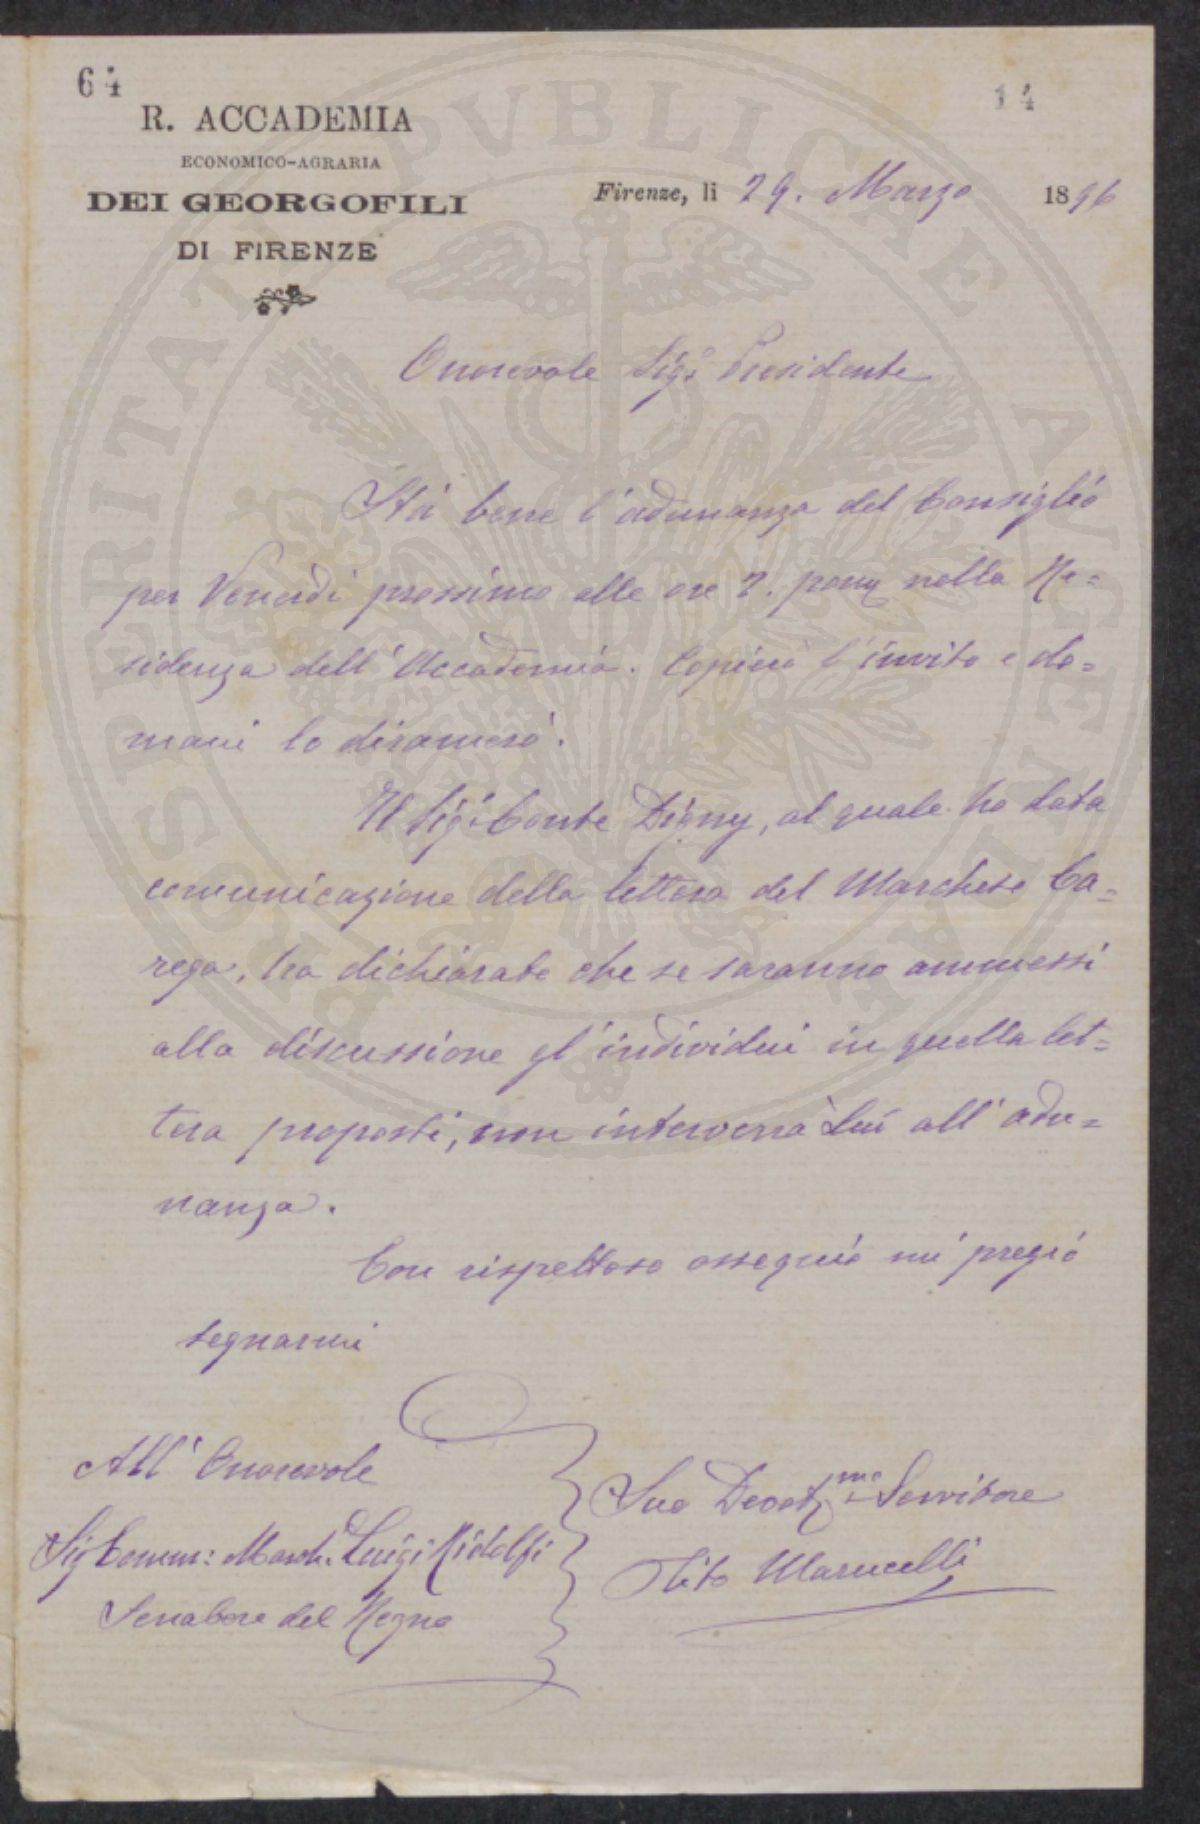 64
14
R. ACCADEMIA
ECONOMICO-AGRARIA
DEI GEORGOFILI
DI FIRENZE
Firenze, li 29. Marzo 1896
Onorevole Sigr Presidente
Stà bene l'adunanza del Consiglio
per Venerdì prossimo alle ore 7. pom nella Re=
sidenza dell'Accademia. Copierò l'invito e do=
mani lo diramerò.
Il Sigr Conte Digny, al quale ho data
comunicazione della lettera del Marchese Ca=
rega, ha dichiarato che se saranno ammessi
alla discussione gl'individui in quella let=
tera proposti, non interverrà Lui all'adu=
nanza.
Con rispettoso ossequio mi pregio
segnarmi
All'Onorevole
Sig Comm: March. Luigi Ridolfi
Senatore del Regno
Suo Devotmo Servitore
Tito Marucelli
PROSPERITATI PVBLICAE AVGENDAE